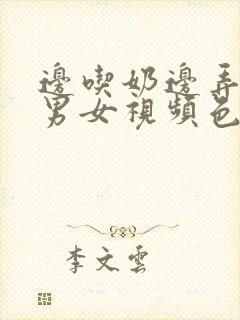 邊喫奶邊弄
男女視頻邑
李文雲